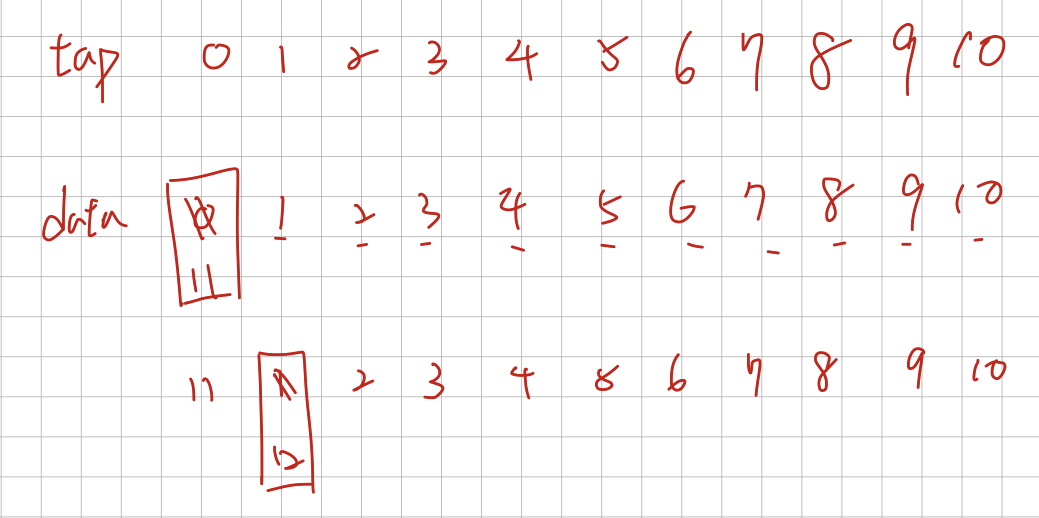 tap 0 1 2 3 4 5 6 7 8 9 10
data 0 1 2 3 4 5 6 7 8 9 10
11
11 1 2 3 4 5 6 7 8 9 10
12